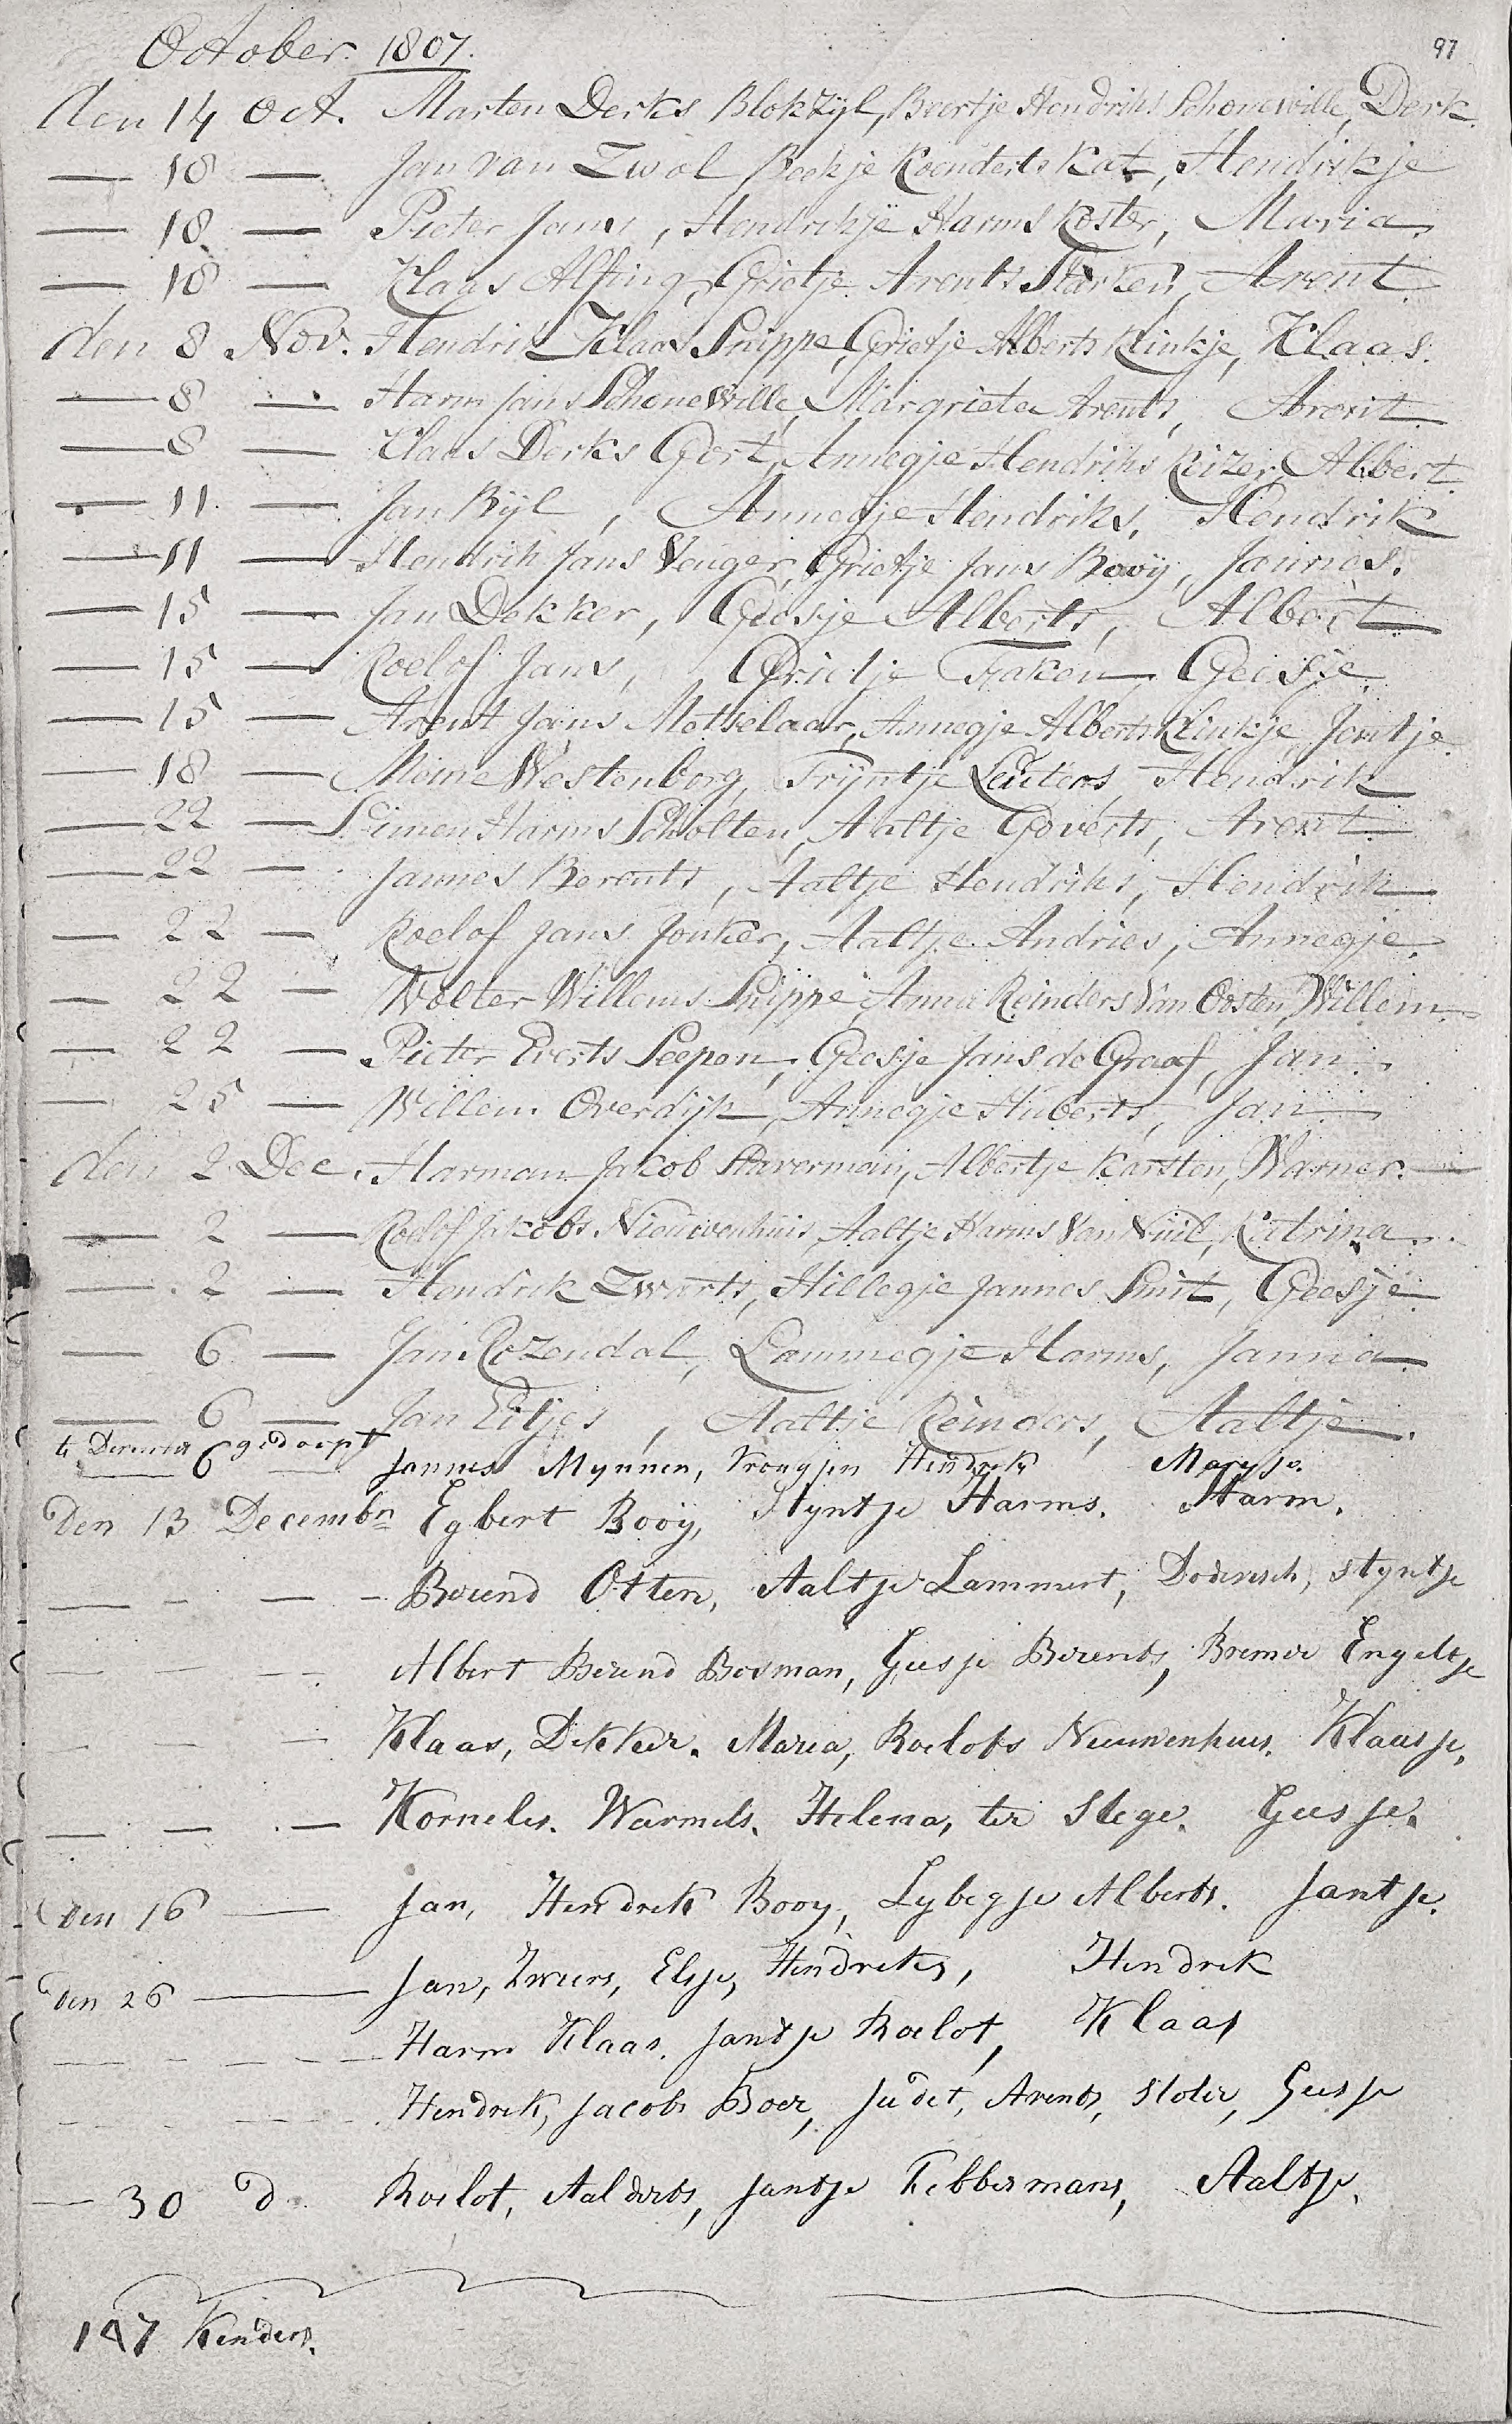 97
October. 1807.
den 14 Oct. Marten Derks Blokzyl, Beertje Hendriks Schonewille, Derk.
— 18 — Jan van Zwol Beekje Koenderts Kat, Hendrikje
— 18 — Pieter Jans, Hendrikje Harms Koster, Maria.
— 18 — Klaas Alfing, Grietje Arents Starken, Arent.
den 8 Nov. Hendrik Klaas Snippe, Grietje Alberts Klinkje, Klaas.
— 8 — Harm Jans Schonewille, Margrieta Arents, Arent.
— 8 — Klaas Derks Gort, Annegje Hendriks Keizer, Albert.
— 11 — Jan Byl, Annegje Hendriks, Hendrik
— 11 — Hendrik Jans Venger, Grietje Jans Booij, Jannes.
— 15 — Jan Dekker, Geesje Alberts, Albert
— 15 — Roelof Jans, Grietje Faken, Geesje.
— 15 — Arent Jans Metselaar, Annegje Alberts Klinkje, Jentje
— 18 — Meine Westenberg, Trijntje Leuters, Hendrik
— 22 — Simen Harms Scholten, Aaltje Goverts, Arent
— 22 — Jannes Berents, Aaltje Hendriks, Hendrik
— 22 — Roelof Jans Jonker, Aaltje Andries, Annegje.
— 22 — Wolter Willems Snippe, Anna Reinders Van Oosten, Willem.
— 22 — Pieter Everts Seepen, Geesje Jans de Graaf, Jan.
— 25 — Willem Overdijk, Annegje Huberts, Jan
den 2 Dec. Harman Jacob Staverman, Albertje Karsten, Warner.
— 2 — Roelof Jakobs Nieuwenhuis, Aaltje Harms Van Nuil, Katrina.
— 2 — Hendrik Zwarts, Hillegje Jannes Smit, Geesje
— 6 — Jan Rozendal, Lammegje Harms, Janna
— 6 — Jan Eitjes, Aaltje Reinders, Aaltje.
te gedoopt
— 6 — Jannes Mynnen, Vrougjen Hendreks Marijje.
Den 13 Decembr Egbert Booij, Styntje Harms. Harm.
— - — - Berend Otten, Aaltje Lammert, styntje
— — — Albert Berend Bosman, Geesje Berents, Bremer Engeltje
— — — Klaas, Dekker. Maria, Roelofs Nieuwenhuis. Klaasje,
— — — Kornelis. Warmels. Helena, ter Stege. Geesje.
den 16 — Jan, Hendrek Booy, Lybegje Alberts. Jantje.
den 26 — Jan, Zweers, Elsje, Hendreks, Hendrek
— — — Harm Klaas. Jantje Roelof, Klaas
— — — Hendrek, Jacobs Boer, Judet, Arents, Sloter, Geesje
— 30 d. Roelof, Aalderts, Jantje Tebbermans, Aaltje.
147 Kinders.